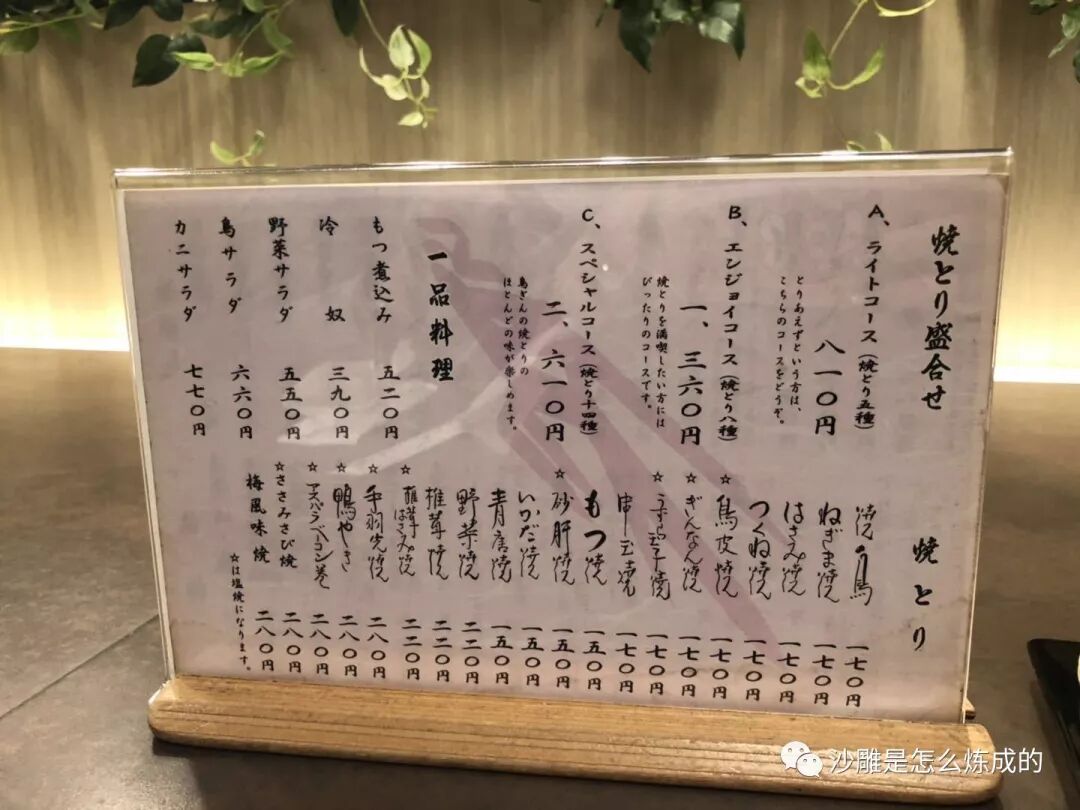 焼とり盛合せ
A、ライトコース（焼とり五種）
八一〇円
とりあえずという方は、
こちらのコースをどうぞ。
B、エンジョイコース（焼とり八種）
一、三六〇円
焼とりを満喫したい方には
ぴったりのコースです。
C、スペシャルコース（焼とり十四種）
二、六一〇円
鳥ぎんの焼とりの
ほとんどの味が楽しめます。
一品料理
もつ煮込み 五二〇円
冷奴 三九〇円
野菜サラダ 五五〇円
鳥サラダ 六六〇円
カニサラダ 七七〇円
焼とり
焼鳥 一七〇円
ねぎま焼 一七〇円
はさみ焼 一七〇円
つくね焼 一七〇円
☆鳥皮焼 一七〇円
☆ぎんなん焼 一七〇円
☆うずら玉子焼 一七〇円
串玉焼 一七〇円
もつ焼 一五〇円
☆砂肝焼 一五〇円
いかだ焼 一五〇円
青唐焼 一五〇円
野菜焼 二二〇円
椎茸焼 二二〇円
☆椎茸はさみ焼 二二〇円
☆手羽先焼 二八〇円
☆鴨やき 二八〇円
☆アスパラベーコン巻 二八〇円
☆ささみさび焼 二八〇円
梅風味焼 二八〇円
☆は塩焼になります。
沙雕是怎么炼成的